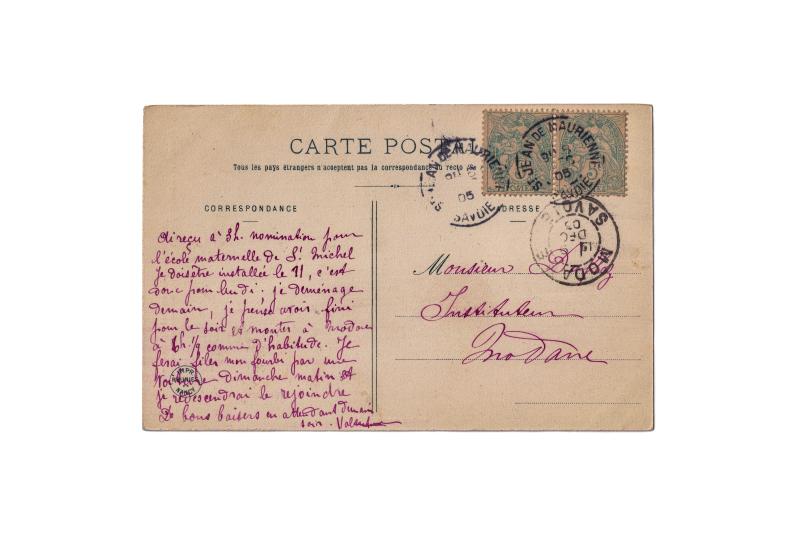 CARTE POSTALE
Tous les pays étrangers n'acceptent pas la correspondance au recto
CORRESPONDANCE
ADRESSE
ST JEAN DE MAURIENNE
05
SAVOIE
ST JEAN DE MAURIENNE
05
SAVOIE
MODANE
DEC
05
SAVOIE
Ai reçu à 3h. nomination pour
l'école maternelle de St Michel
je dois être installée le 11, c'est
donc pour lundi. je déménage
demain, je pense avoir fini
pour le soir et monter à Modane
à 6h 1/2 comme d'habitude. Je
ferai filer mon fourbi par une
Dimanche matin et
je redescendrai le rejoindre
De bons baisers en attendant demain
soir.
Monsieur
Instituteur
Modane
IMPR
REUNIES
NANCY